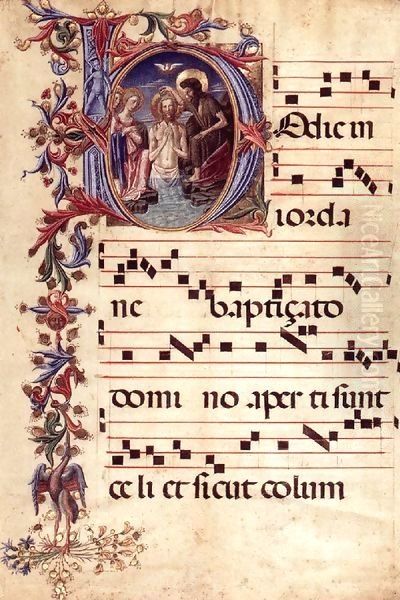 Hodie in
iorda
ne baptiçato
domi no aper ti sunt
ce li et sicut colum